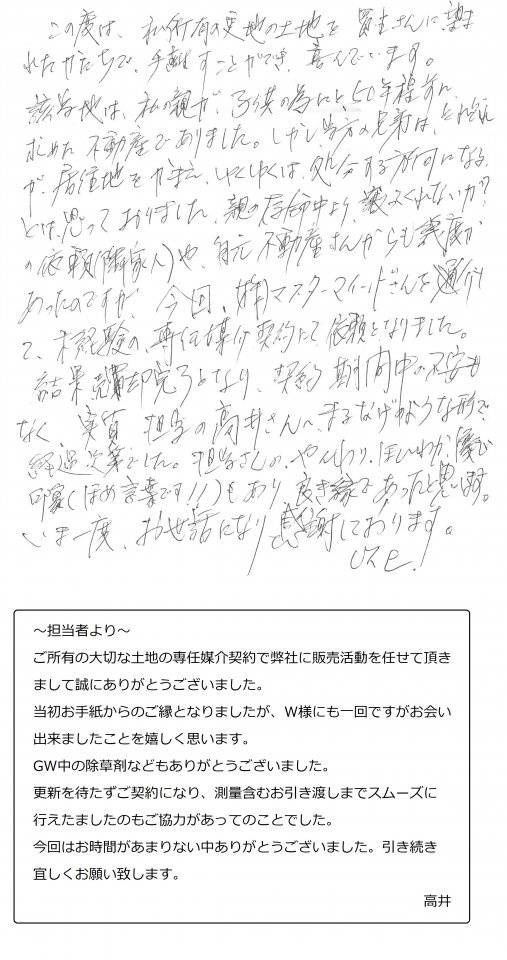 この度は、私所有の更地の土地を 買主さんに、望ま
れたかたちで、手離すことができ、喜んでいます。
該当地は、私の親が、子供の為にと、50年程前に、
求めた 不動産でありました。しかし、当方の兄弟は、それぞれ
が、居住地をかまえ、ゆくゆくは、処分する方向になる
とは、思っておりました、親の存命中より、譲ってくれないか?
の依頼(隣家人)や、自元 不動産さんからも幾度か
あったのですが、今回、(株)マスターマインドさんを通介し
て、未経験の、専任媒介契約にて依頼となりました。
結果 売却完了となり、契約期間中の不安も
なく、実質 担当の高井さんへ、まるなげのような形で、
経過次第でした。担当さんの、やんわり、ほんわか
印象(ほめ言葉です!!)もあり、良き縁であったと思います。
いま一度、お世話になり感謝しております。
以上.
~担当者より~
ご所有の大切な土地の専任媒介契約で弊社に販売活動を任せて頂き
まして誠にありがとうございました。
当初お手紙からのご縁となりましたが、W様にも一回ですがお会い
出来ましたことを嬉しく思います。
GW中の除草剤などもありがとうございました。
更新を待たずご契約になり、測量含むお引き渡しまでスムーズに
行えたましたのもご協力があってのことでした。
今回はお時間があまりない中ありがとうございました。引き続き
宜しくお願い致します。
高井